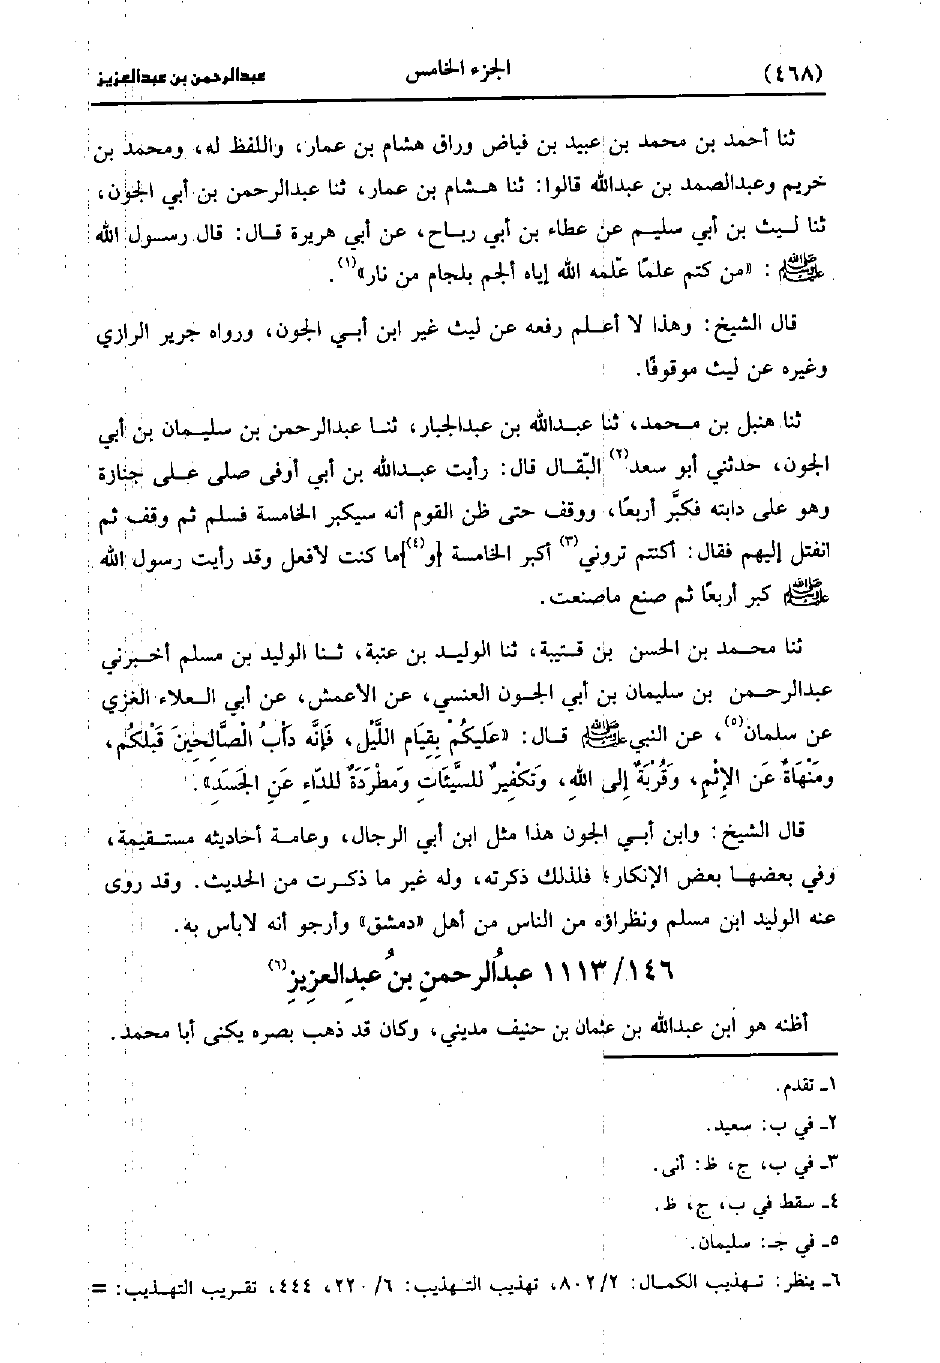 (٤٦٨) الجزء الخامس عبدالرحمن بن عبدالعزيز
ثنا أحمد بن محمد بن عبيد بن فياض وراق هشام بن عمار، واللفظ له، ومحمد بن
خريم وعبدالصمد بن عبدالله قالوا: ثنا هشام بن عمار، ثنا عبدالرحمن بن أبي الجون،
ثنا ليث بن أبي سليم عن عطاء بن أبي رباح، عن أبي هريرة قال: قال رسول الله
ﷺ: «من كتم علمًا علّمه الله إياه ألجم بلجام من نار»(١).
قال الشيخ: وهذا لا أعلم رفعه عن ليث غير ابن أبي الجون، ورواه جرير الرازي
وغيره عن ليث موقوفًا.
ثنا هنبل بن محمد، ثنا عبدالله بن عبدالجبار، ثنا عبدالرحمن بن سليمان بن أبي
الجون، حدثني أبو سعد(٢) البّقال قال: رأيت عبدالله بن أبي أوفى صلى على جنازة
وهو على دابته فكبَّر أربعًا، ووقف حتى ظن القوم أنه سيكبر الخامسة فسلم ثم وقف ثم
انفتل إليهم فقال: أكنتم تروني(٣) أكبر الخامسة [و(٤)]ما كنت لافعل وقد رأيت رسول الله
ﷺ كبر أربعًا ثم صنع ماصنعت.
ثنا محمد بن الحسن بن قتيبة، ثنا الوليد بن عتبة، ثنا الوليد بن مسلم أخبرني
عبدالرحمن بن سليمان بن أبي الجون العنسي، عن الأعمش، عن أبي العلاء الغزي
عن سلمان(٥)، عن النبي ﷺ قال: «عَلَيكُمْ بِقِيَامِ اللَّيْلِ، فَإِنَّه دَأْبُ الْصَّالِحِينَ قَبْلكُم،
ومَنْهَاةٌ عَنِ الإِثْمِ، وَقُرْبَةٌ إِلى اللهِ، وَتَكْفِيرٌ للسَّيِّئَاتِ وَمَطْرَدَةٌ للدَّاءِ عَنِ الجَسَدِ».
قال الشيخ: وابن أبي الجون هذا مثل ابن أبي الرجال، وعامة أحاديثه مستقيمة،
وفي بعضها بعض الإنكار؛ فلذلك ذكرته، وله غير ما ذكرت من الحديث. وقد روى
عنه الوليد ابن مسلم ونظراؤه من الناس من أهل «دمشق» وأرجو أنه لابأس به.
١١١٣/١٤٦ عبدُالرحمنِ بنُ عبدِالعزيزِ(٦)
أظنه هو ابن عبدالله بن عثمان بن حنيف مديني، وكان قد ذهب بصره يكنى أبا محمد.
١ـ تقدم.
٢ـ في ب: سعيد.
٣ـ في ب، ج، ظ: أنى.
٤ـ سقط في ب، ج، ظ.
٥ـ في جـ: سليمان.
٦ـ ينظر: تهذيب الكمال: ٨٠٢/٢، تهذيب التهذيب: ٢٢٠/٦، ٤٤٤، تقريب التهذيب: =